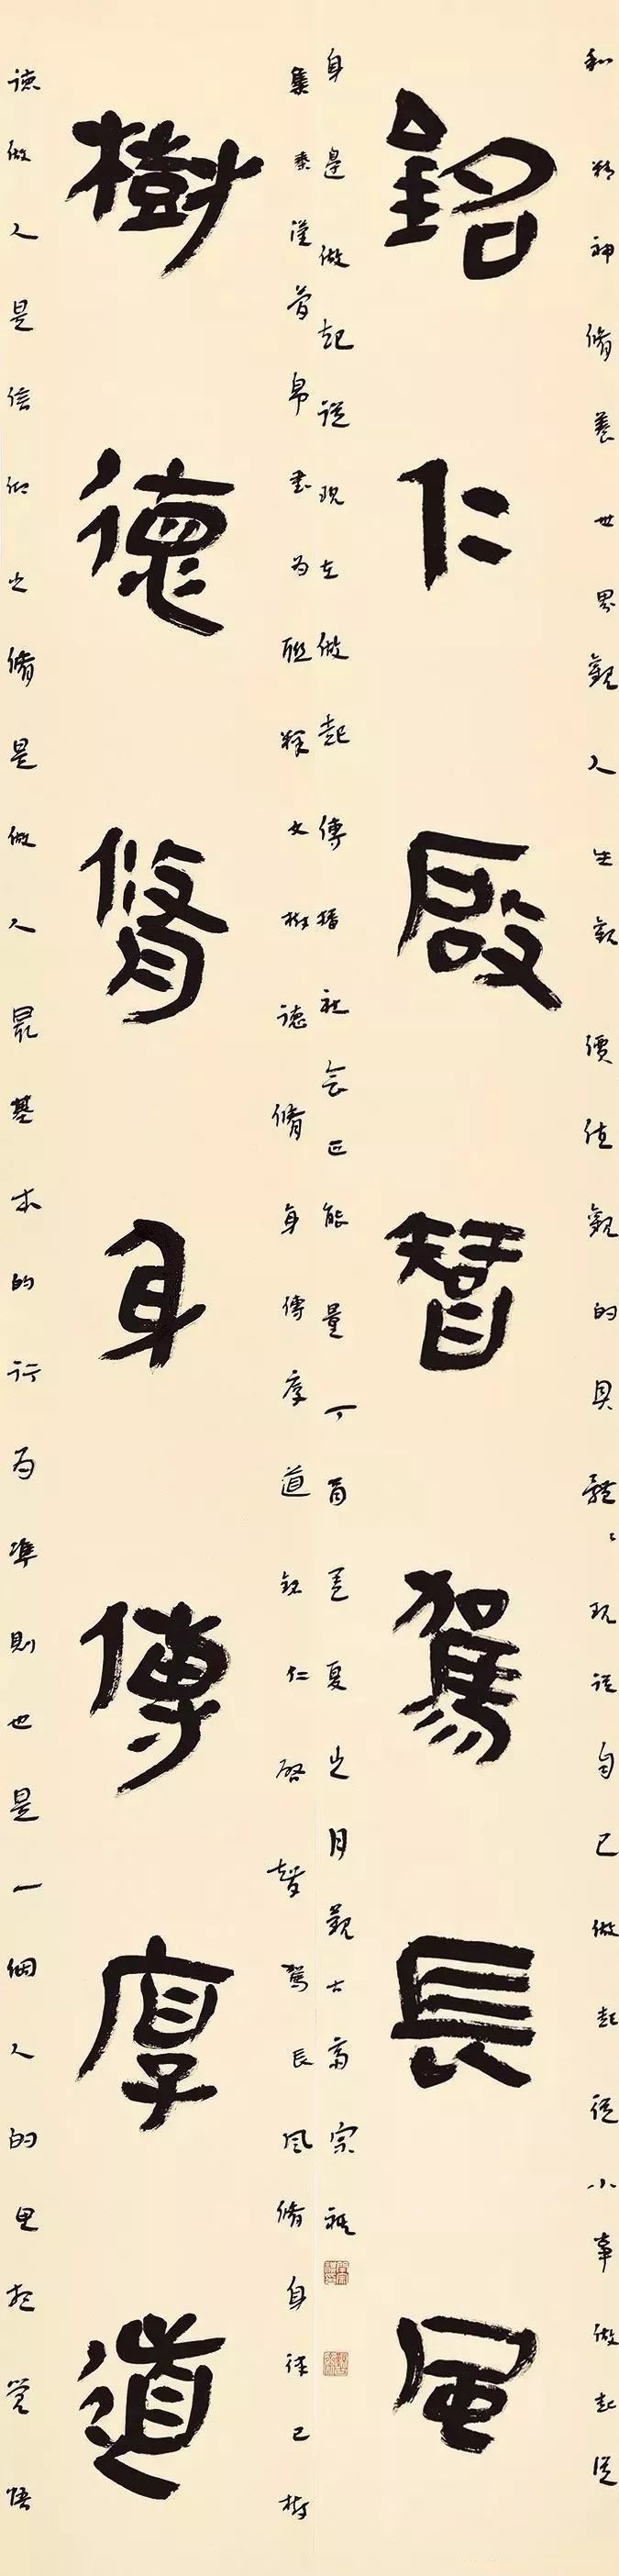 樹德脩身傳厚道
集秦漢簡帛書為聯釋文樹德脩身傳厚道銘仁啟智駕長風脩身律己樹
德做人是信仰之脩是做人最基本的行為準則也是一個人的思想覺悟
銘仁啟智駕長風
和精神脩養世界觀人生觀價值觀的具體〻現從自己做起從小事做起從
身邊做起從現在做起傳播社會正能量丁酉孟夏之月觀古齋宗